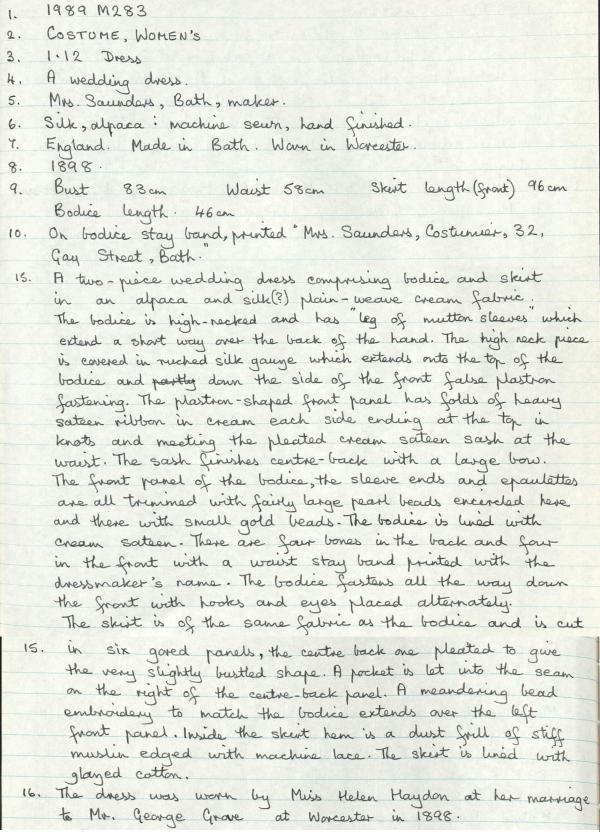 1. 1989 M283
2. COSTUME, WOMEN'S
3. 1.12 Dress
4. A wedding dress.
5. Mrs. Saunders, Bath, maker.
6. Silk, alpaca : machine sewn, hand finished.
7. England. Made in Bath. Worn in Worcester.
8. 1898.
9. Bust 83cm Waist 58cm Skirt length (front) 96cm
Bodice length. 46cm
10. On bodice stay band, printed "Mrs. Saunders, Costumier, 32,
Gay Street, Bath."
15. A two-piece wedding dress comprising bodice and skirt
in an alpaca and silk(?) plain-weave cream fabric.
The bodice is high-necked and has "leg of mutton sleeves" which
extend a short way over the back of the hand. The high neck piece
is covered in ruched silk gauge which extends onto the top of the
bodice and partly down the side of the front false plastron
fastening. The plastron-shaped front panel has folds of heavy
sateen ribbon in cream each side ending at the top in
knots and meeting the pleated cream sateen sash at the
waist. The sash finishes centre-back with a large bow.
The front panel of the bodice, the sleeve ends and epaulettes
are all trimmed with fairly large pearl beads encircled here
and there with small gold beads. The bodice is lined with
cream sateen. There are four bones in the back and four
in the front with a waist stay band printed with the
dressmaker's name. The bodice fastens all the way down
the front with hooks and eyes placed alternately.
The skirt is of the same fabric as the bodice and is cut
15. in six gored panels, the centre back one pleated to give
the very slightly bustled shape. A pocket is let into the seam
on the right of the centre-back panel. A meandering bead
embroidery to match the bodice extends over the left
front panel. Inside the skirt hem is a dust frill of stiff
muslin edged with machine lace. The skirt is lined with
glazed cotton.
16. The dress was worn by Miss Helen Haydon at her marriage
to Mr. George Grove at Worcester in 1898.